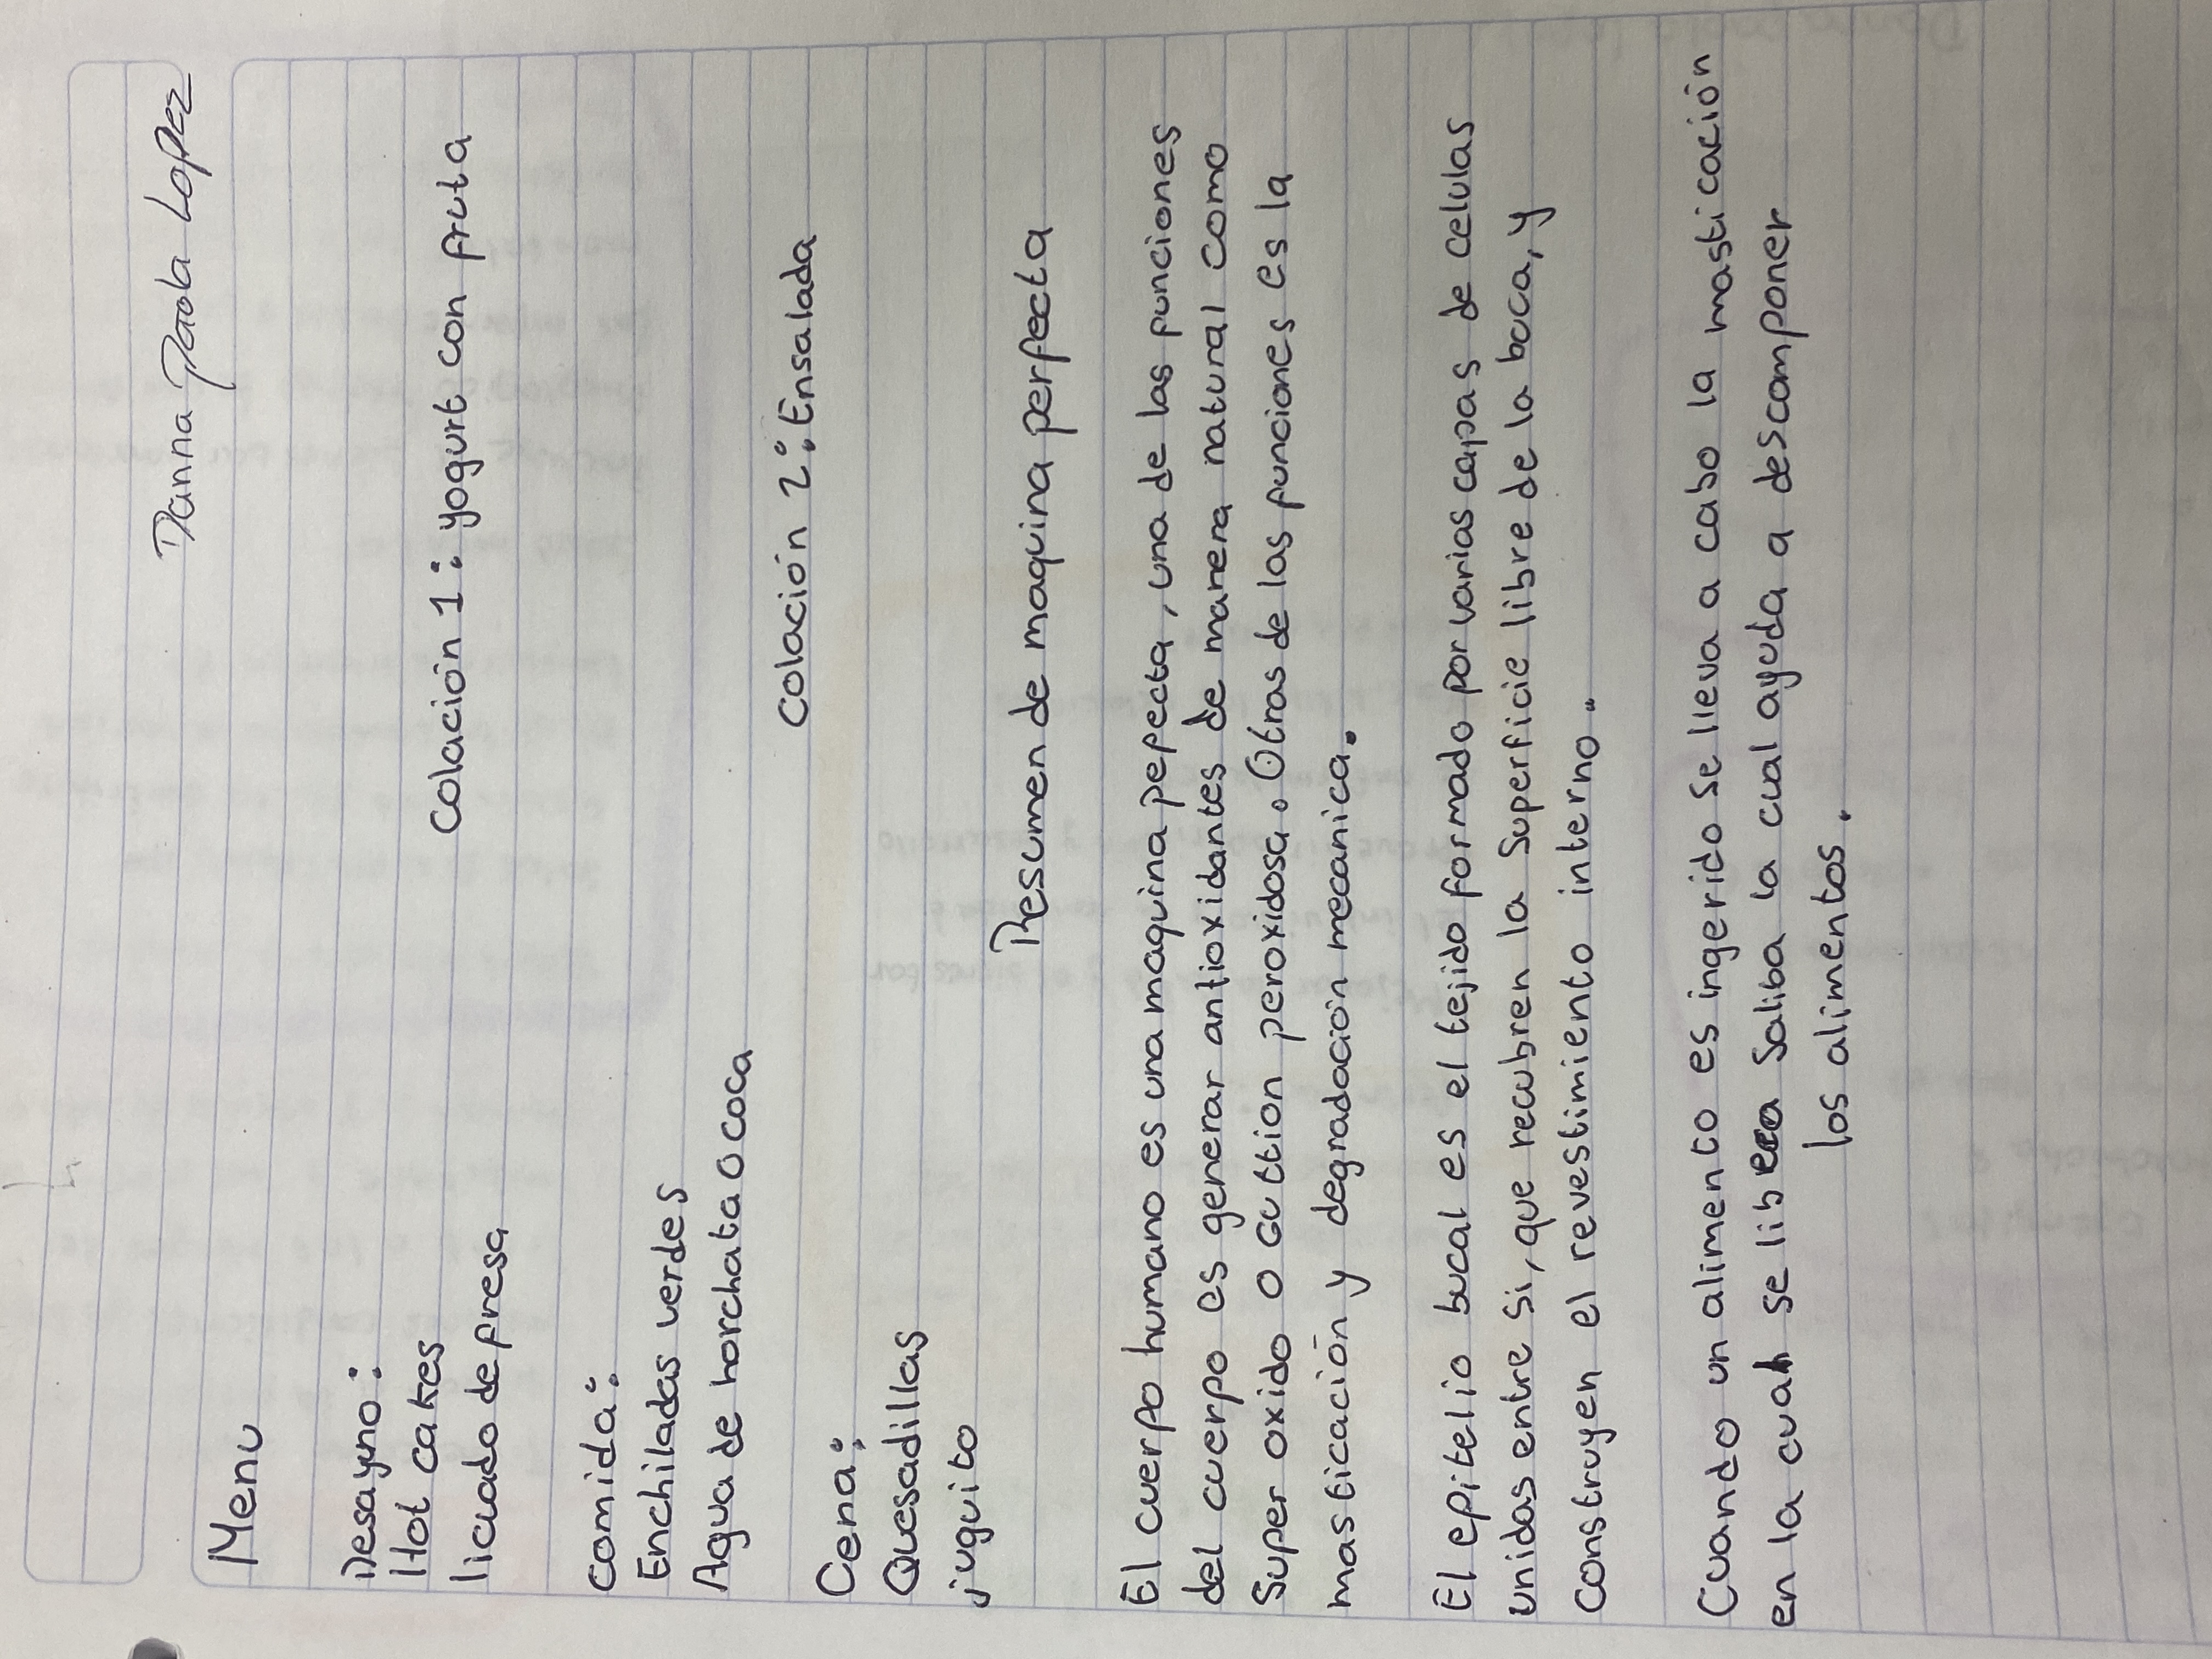 Danna Paola Lopez
Menu
Desayuno:
Hot cakes
licuado de fresa
Colación 1: yogurt con fruta
comida:
Enchiladas verdes
Agua de horchata o coca
Colación 2: Ensalada
Cena:
Quesadillas
juguito
Resumen de maquina perfecta
El cuerpo humano es una maquina pefecta, una de las funciones
del cuerpo es generar antioxidantes de manera natural como
Super oxido o Guttion peroxidosa. Otras de las funciones es la
masticación y degradación mecanica.
El epitelio bucal es el tejido formado por varias capas de celulas
unidas entre si, que recubren la Superficie libre de la boca, y
construyen el revestimiento interno.
Cuando un alimento es ingerido se lleva a cabo la masticación
en la cual se libera Saliba la cual ayuda a descomponer
los alimentos.